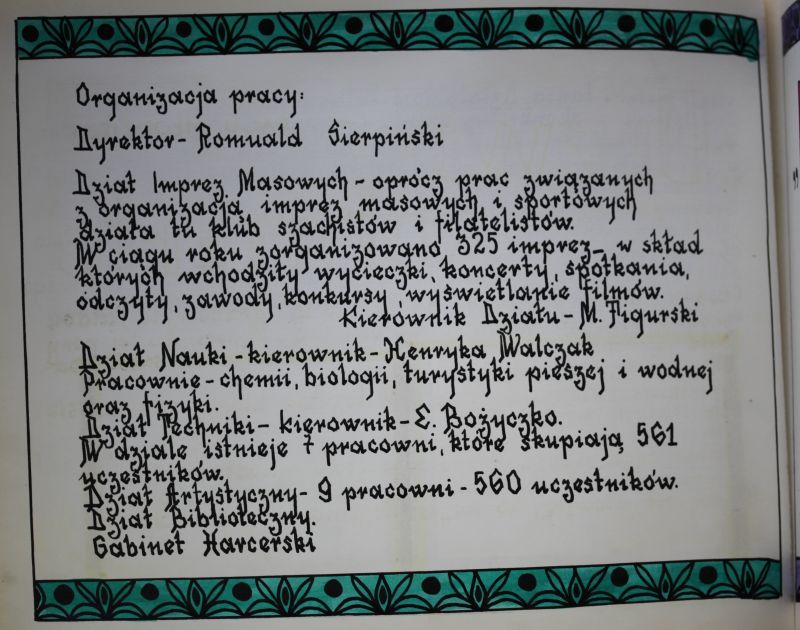 Organizacja pracy:
Dyrektor - Romuald Sierpiński
Dział Imprez Masowych - oprócz prac związanych
z organizacją imprez masowych i sportowych
działa tu klub szachistów i filatelistów.
W ciągu roku zorganizowano 325 imprez, w skład
których wchodziły wycieczki, koncerty, spotkania,
odczyty, zawody, konkursy, wyświetlanie filmów.
Kierownik Działu - M. Figurski
Dział Nauki - kierownik - Henryka Walczak
Pracownie - chemii, biologii, turystyki pieszej i wodnej
oraz fizyki.
Dział Techniki - kierownik - E. Bożyczko.
W dziale istnieje 7 pracowni, które skupiają 561
uczestników.
Dział Artystyczny - 9 pracowni - 560 uczestników.
Dział Biblioteczny.
Gabinet Harcerski